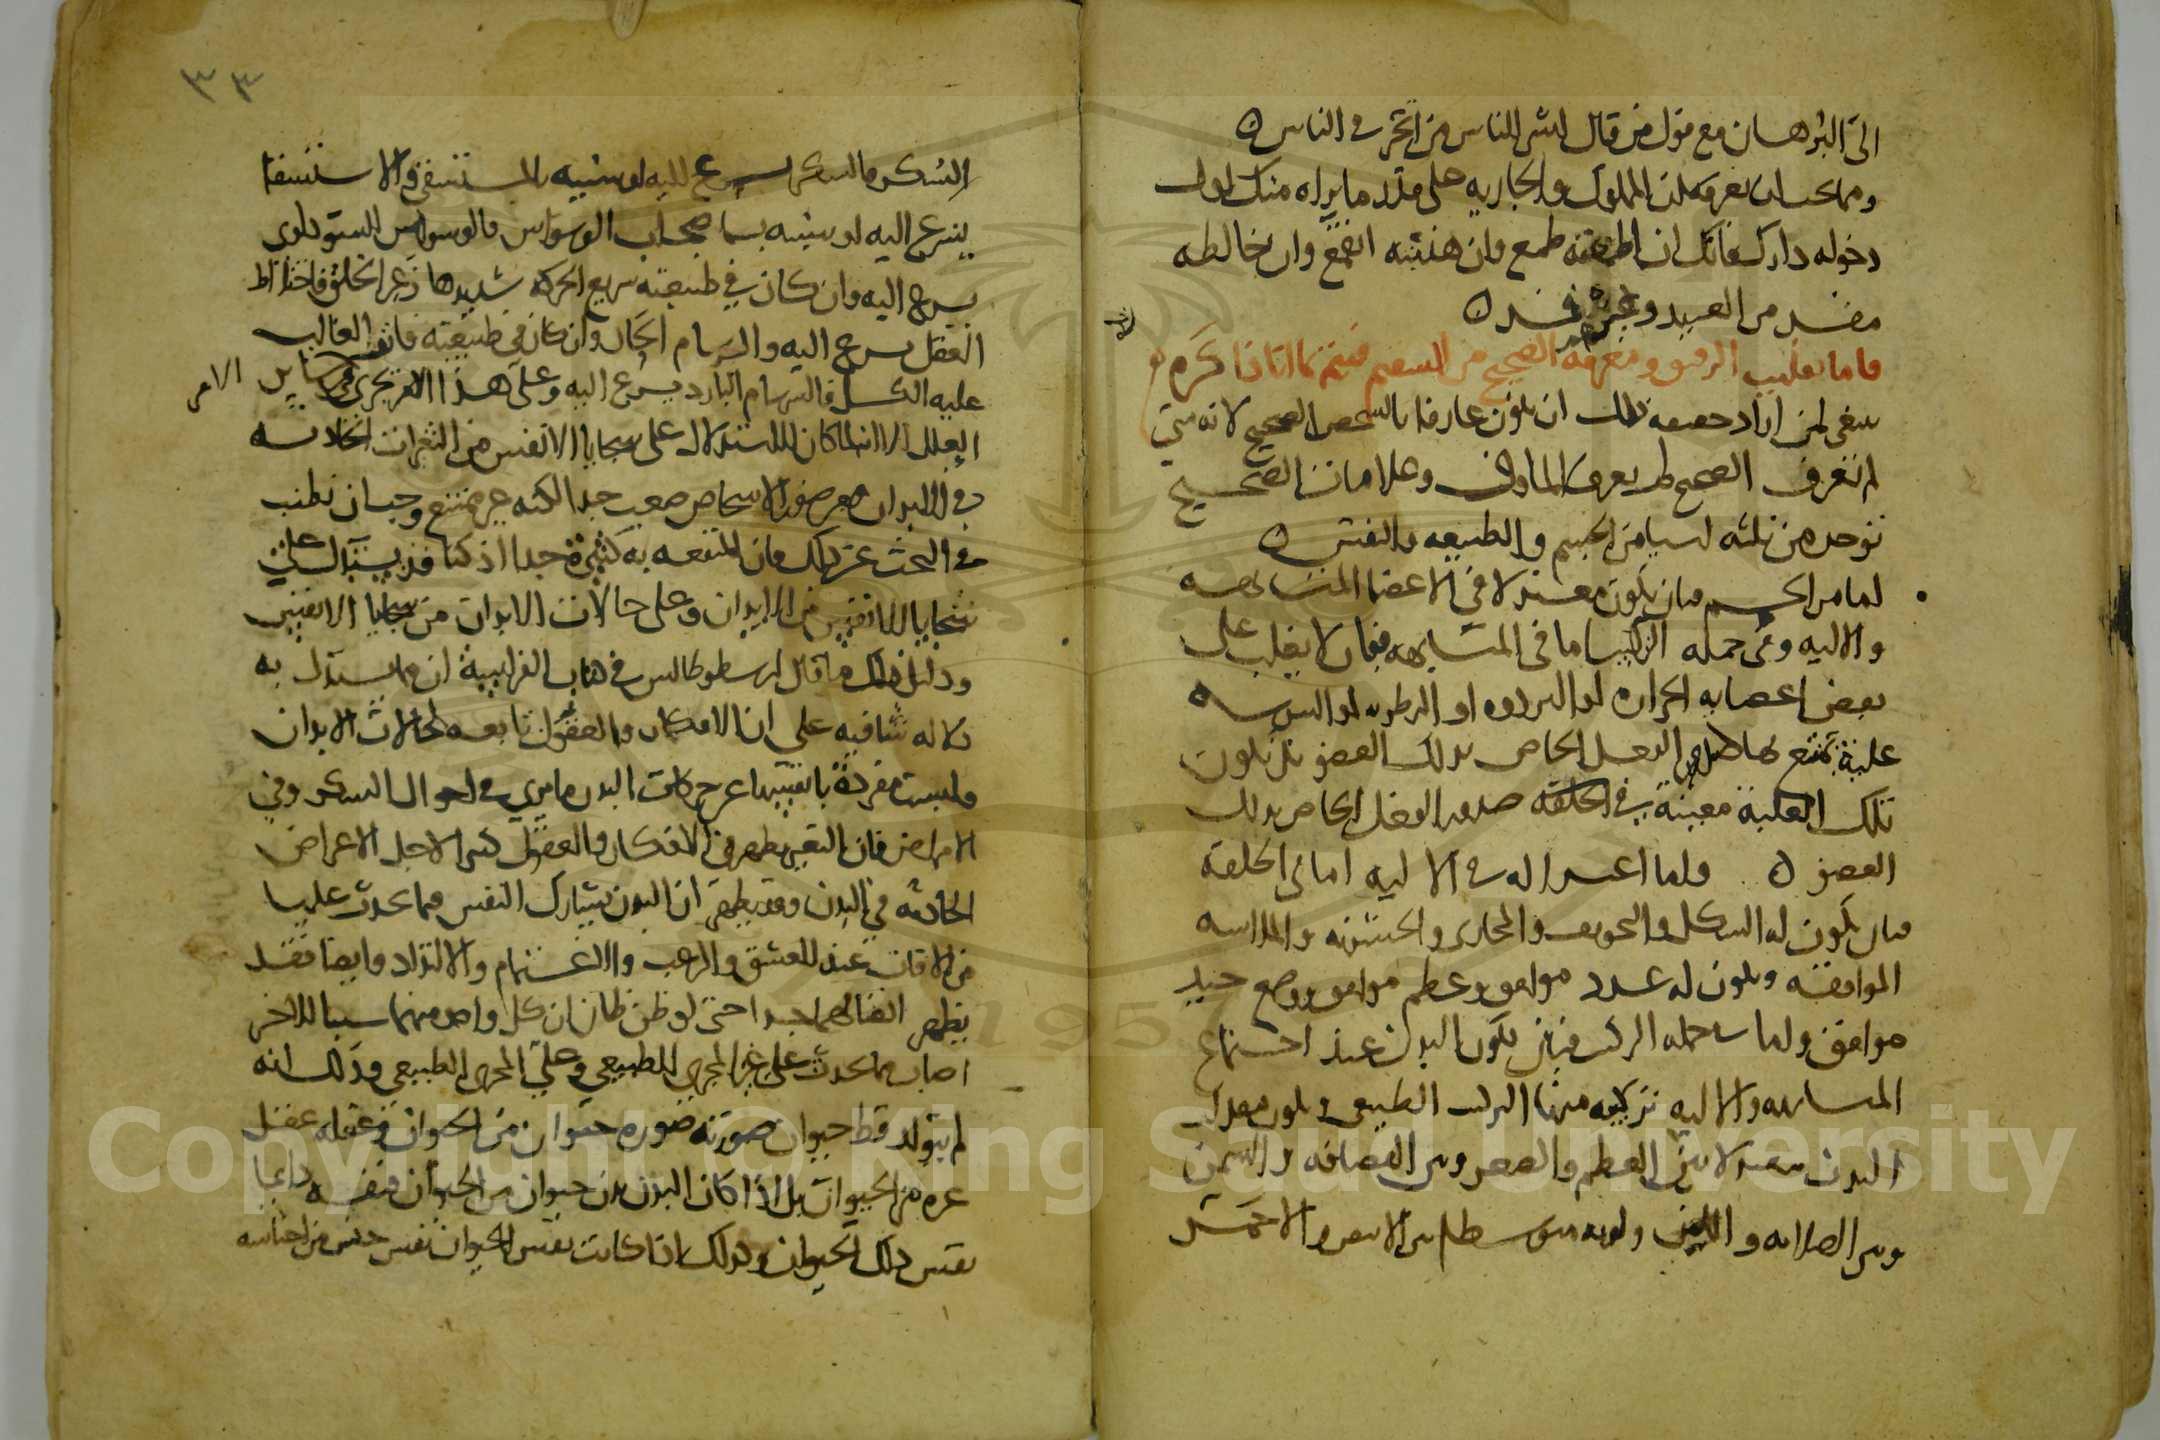 الى البرهان مع قول من قال لشر الناس من اتجر في الناس ه
ومما يجب ان تعرفه ان المملوك والجاريه على قدر ما يراه منك اول
دخوله دارك فانك ان اطمعته طمع وان هذبته انقمع وان خالطه
مفسد من العبيد وغيره فسد ه
فاما تقليب الرقيق ومعرفة الصحيح من السقيم فيتم بما انا ذاكره
ينبغي لمن اراد حقيقه ذلك ان يكون عارفا بالشخص الصحيح لانه متى
لم تعرف الصحيح لم يعرف الماووف وعلامات الصحيح
توخذ من ثلثه اشيا من الجسم والطبيعه والنفس ه
اما من الجسم فبان يكون معتدلا في الاعضا المتشابهه
والاليه وفي جمله التركيب اما في المتشابهه فبان لا يغلب على
بعض اعضايه الحراره او البروده او الرطوبه او اليبوسه
غلبة تمنع بها ظهور الفعل الخاص بذلك العضو بل تكون
تلك الغلبة معينة في الخلقه صدور الفعل الخاص بذلك
العضو ه واما اعتداله في الاليه اما في الخلقة
فبان يكون له الشكل والتجويف والمجارى والخشونه والملاسه
الموافقه ويكون له عدد موافق وعظم موافق ووضع جيد
موافق واما في جمله التركيب فبان يكون البدن عند اجتماع
المتشابهه والاليه تركيبه منها التركيب الطبيعي ويكون مقدار
البدن معتدلا بين العظم والصغر وبين القضافه والسمن
وبين الصلابه واللين ولونه متوسطا بين الابيض والاحمر
٣٣
السكر فالسكر يسرع اليه او شبيه بالمستسقى فالاستسقا
يسرع اليه او شبيه باصحاب الوسواس فالوسواس السوداوى
يسرع اليه وان كان في طبيعته سريع الحركه شديدها زعر الخلق فاختلاط
العقل يسرع اليه والسرسام الحار وان كان في طبيعته فاتر الغالب
عليه الكسل فالسرسام البارد يسرع اليه وعلى هذا الامر يجرى في ساير
الامر
العلل الا انه لما كان الاستدلال على سجايا الانفس من التغيرات الحادثه
في الابدان صعب جدا لكنه غير ممتنع وجب ان نطنب
في البحث عن ذلك فان المنفعه به كثيرة جدا اذ كنا قد بينا
سجايا الانفس من الابدان وعلى حالات الابدان من سجايا الانفس
ودليل ذلك ما قال ارسطوطاليس في كتاب الفراسة ان مما يستدل به
دلاله شافيه على ان الافكار والعقول تابعه لحالات الابدان
وليست مفردة بانفسها عن حركات البدن ما يرى في احوال السكر وفي
الامراض فان التغير يظهر في الافكار والعقول كثيرا لاجل الاعراض
الحادثه في البدن وقد يظهر ان البدن يشارك النفس فيما يحدث عليها
من الافات عند العشق والرعب والاغتمام والالتذاد وايضا فقد
يظهر اتفاقهما جدا حتى لو ظن ظان ان كل واحد منهما سببا للاخر
اصاب مما يحدث على غير المجرى الطبيعي وعلى المجرى الطبيعي وذلك انه
لم يتولد قط حيوان صورته صورة حيوان من الحيوان وعقله عقل
غيره من الحيوان بل اذا كان البدن بدن حيوان من الحيوان فنفسه دايما
نفس ذلك الحيوان وكذلك اذا كانت نفس الحيوان نفس جنس من اجناسه
Copyright © King Saud University
1957